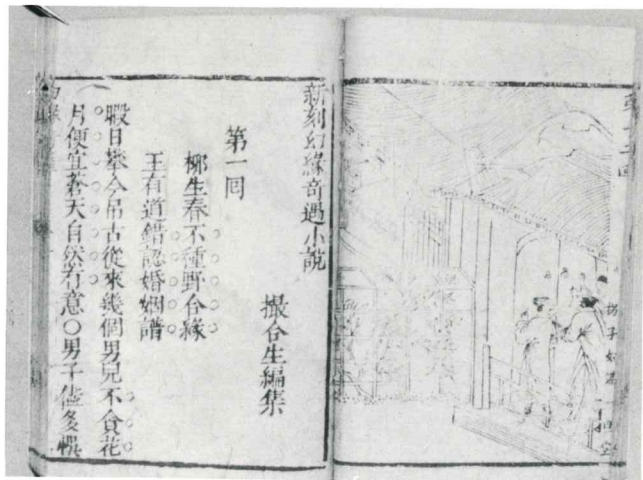 第十二回
新刻幻緣奇遇小說
撮合生編集
第一回
柳生春不種野合緣
王有道錯認婚姻譜
暇日攀今吊古從來幾個男兒不貪花
月便宜蒼天自然有意○男子儘多